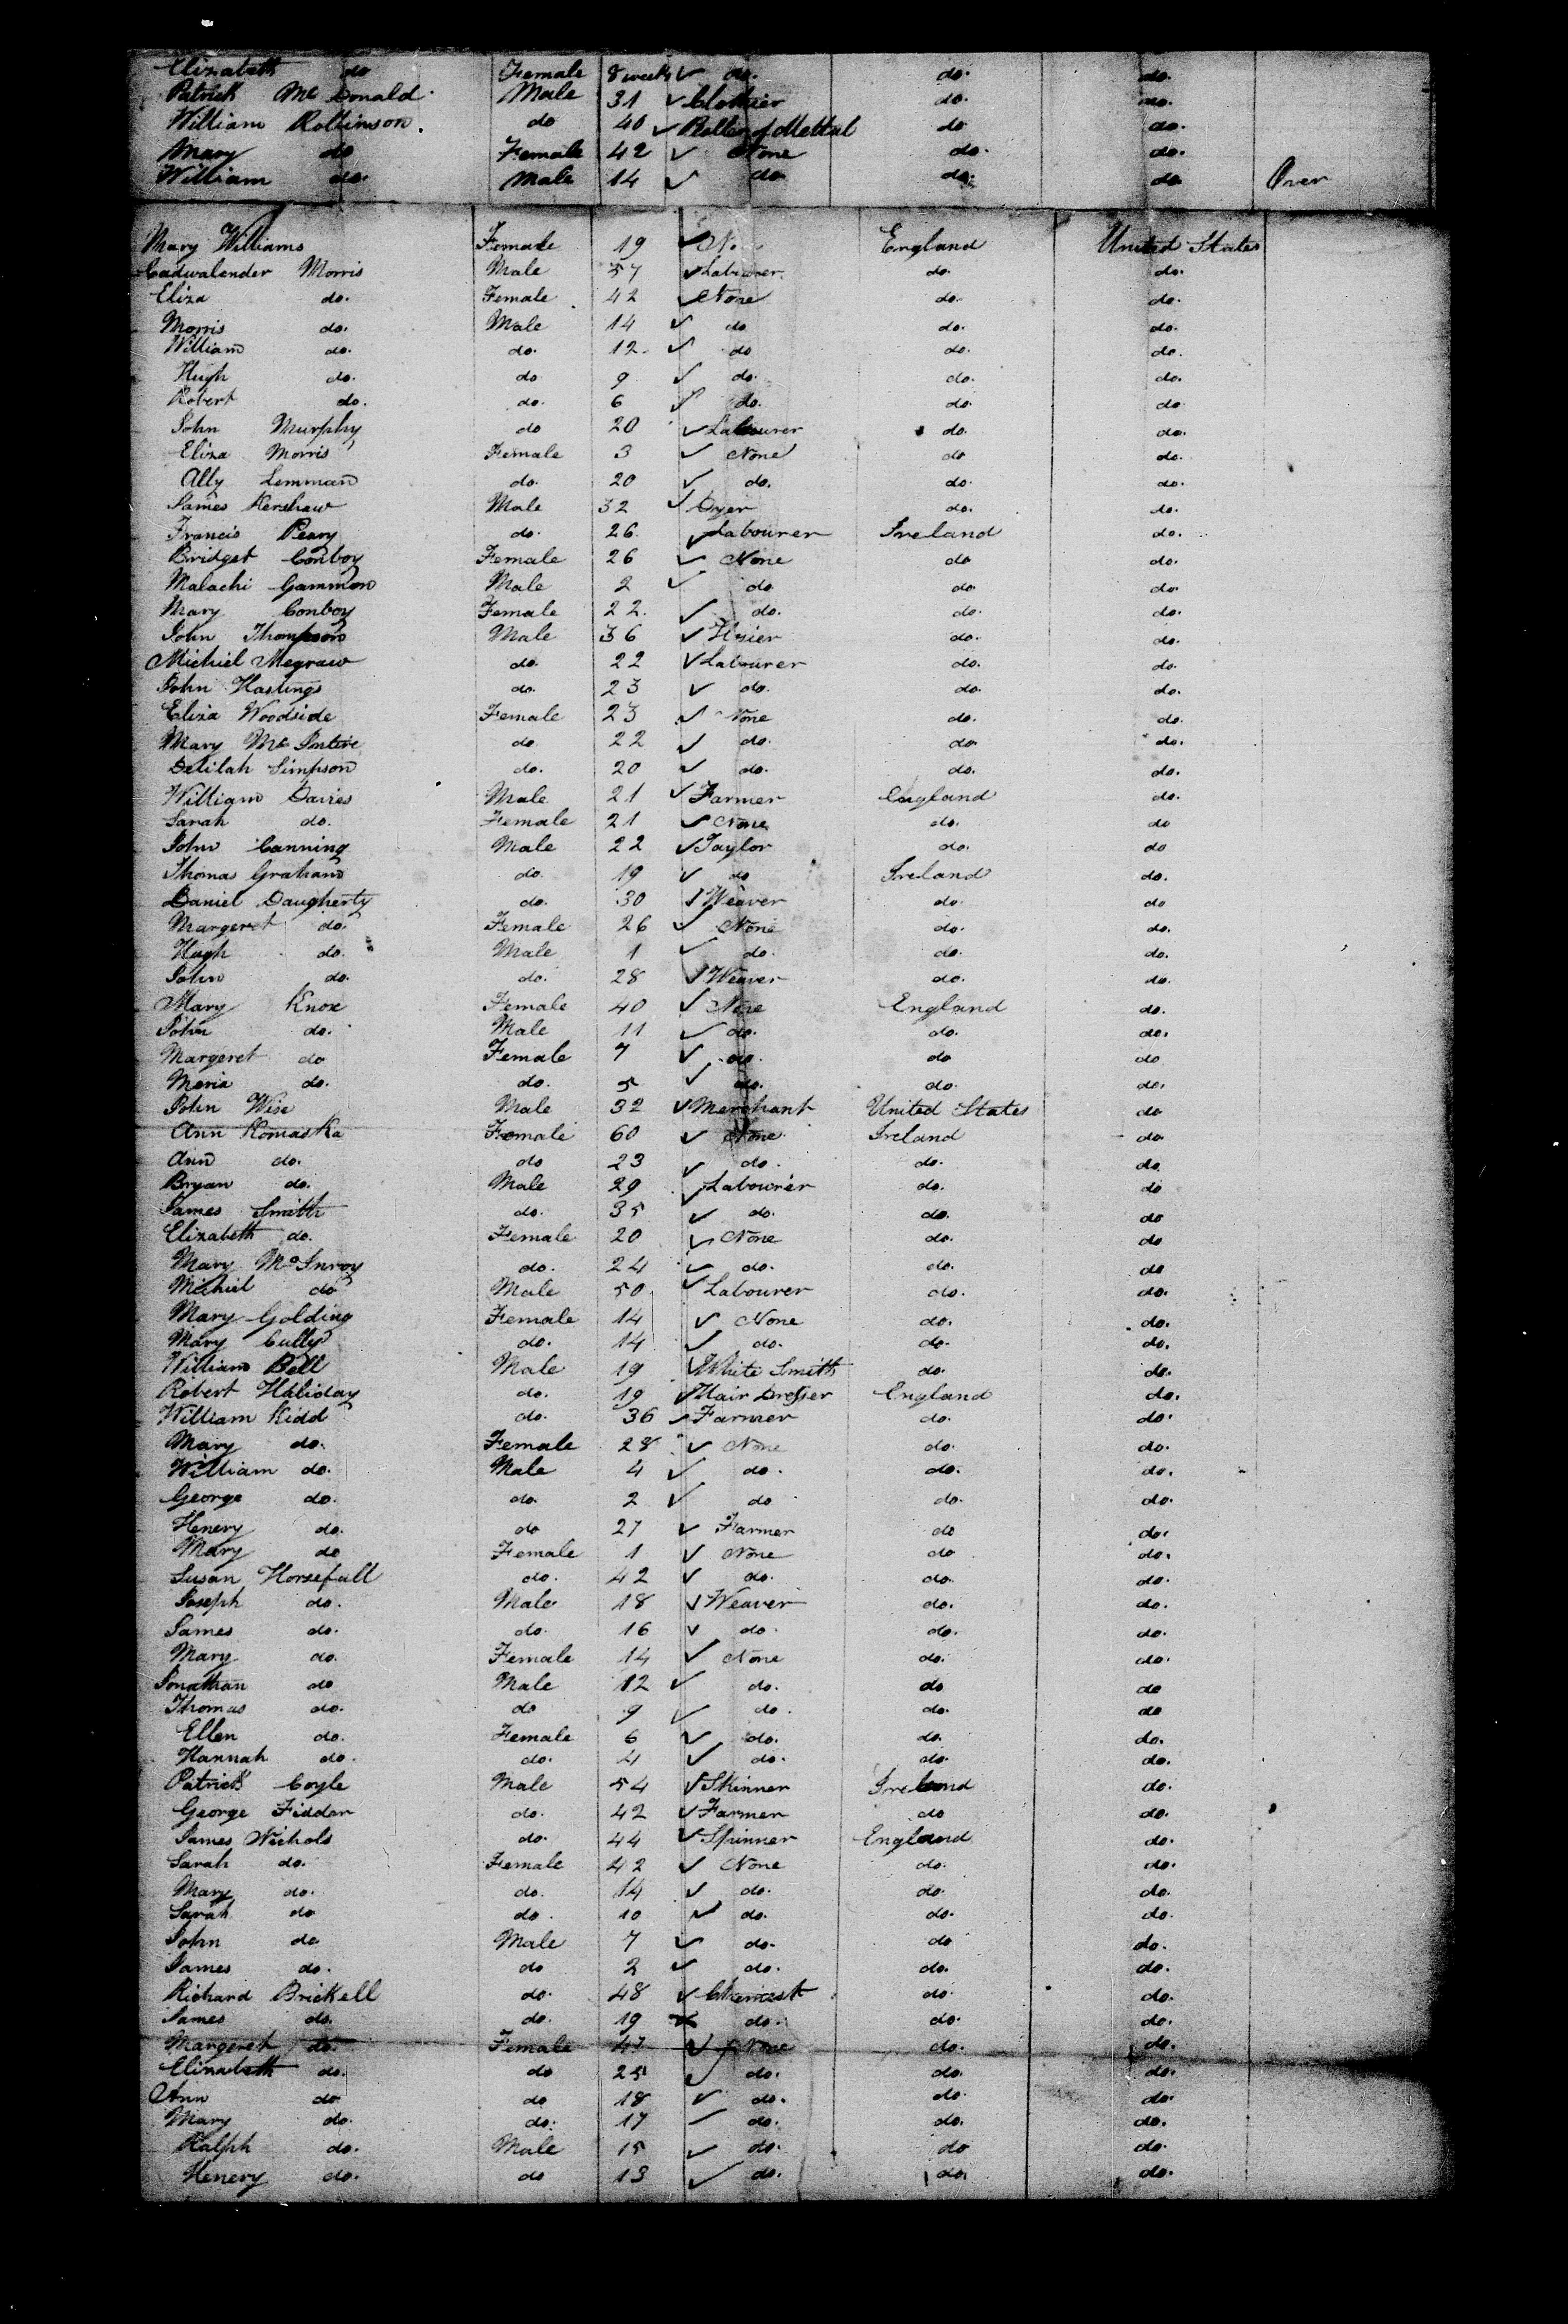 Elizabeth do Female 8 weeks do. do. do.
Patrick Mc Donald Male 31 Clothier do. do.
William Rollinson. do 40 Roller of Mettal do do.
Mary do Female 42 None do. do.
William do. Male 14 do do. do Over
Mary Williams Female 19 England United States
Cadwalender Morris Male 57 Labourer do. do.
Eliza do. Female 42 None do. do.
Morris do. Male 14 do do. do.
William do. do. 12. do do. do.
Hugh do. do 9 do. do. do.
Robert do. do. 6 do. do. do
John Murphy do 20 Labourer do. do.
Eliza Morris Female 3 None do do.
Ally Lemman do. 20 do. do. do.
James Kershaw Male 32 Dyer do. do.
Francis Peary do. 26. Labourer Ireland do.
Bridget Conboy Female 26 None do do.
Malachi Gammon Male 2 do do. do
Mary Conboy Female 22. do. do. do.
John Thompson Male 36 do. do.
Michiel Megraw do. 22 Labourer do. do.
John Hastings do. 23 do. do. do.
Eliza Woodside Female 23 None do. do.
Mary Mc Intire do 22 do. do do.
Delilah Simpson do. 20 do. do. do.
William Davies Male 21 Farmer England do.
Sarah do. Female 21 None do. do
John Canning Male 22 Taylor do. do
Thomas Graham do. 19 do Ireland do.
Daniel Daugherty do. 30 Weaver do. do
Margeret do. Female 26 None do. do.
Hugh do. Male 1 do. do. do.
John do. do. 28 Weaver do. do.
Mary Knox Female 40 None England do.
John do. Male 11 do. do. do.
Margeret do Female 7 do. do do
Maria do. do. 5 do. do. do.
John Wise Male 32 Merchant United States do
Ann Komaska Female 60 None Ireland do
Ann do. do 23 do. do. do
Bryan do. Male 29 Labourer do. do
James Smith do. 35 do. do. do
Elizabeth do. Female 20 None do. do
Mary Mc Inroy do. 24 do. do. do
Michiel do Male 50 Labourer do. do.
Mary Golding Female 14 None do. do.
Mary Cully do. 14 do. do. do.
William Bell Male 19 White Smith do. do.
Robert Haliday do. 19 Hair Dresser England do.
William Kidd do. 36 Farmer do. do.
Mary do. Female 28 None do. do.
William do. Male 4 do. do. do.
George do. do. 2 do do. do.
Henery do. do 27 Farmer do do.
Mary do Female 1 None do do.
Susan Horsefall do. 42 do. do. do.
Joseph do. Male 18 Weaver do. do.
James do. do. 16 do. do. do.
Mary do. Female 14 None do. do.
Jonathan do Male 12 do. do do
Thomas do. do 9 do. do. do
Ellen do. Female 6 do. do. do.
Hannah do. do. 4 do. do. do.
Patrick Coyle Male 54 Skinner Ireland do.
George Fiddar do. 42 Farmer do do.
James Nichols do. 44 Spinner England do.
Sarah do. Female 42 None do. do.
Mary do. do. 14 do. do. do.
Sarah do do. 10 do. do. do.
John do Male 7 do. do do.
James do. do 2 do. do. do.
Richard Brickell do. 48 Chemist do. do.
James do. do. 19 do. do. do.
Margeret do. Female 47 None do. do.
Elizabeth do. do 25 do. do. do.
Ann do do 18 do. do. do.
Mary do. do. 17 do. do. do.
Ralph do. Male 15 do. do do.
Henery do. do 13 do. do. do.